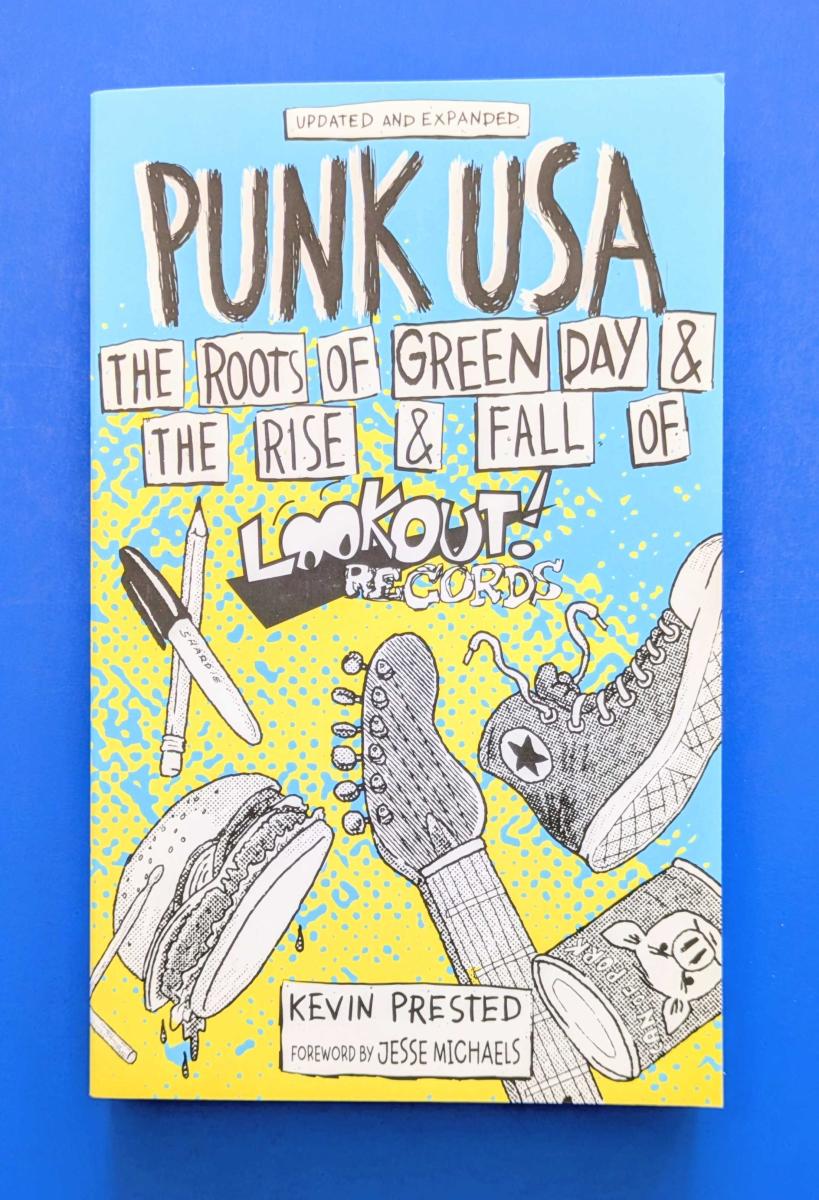 UPDATED AND EXPANDED
PUNK USA
THE ROOTS OF GREEN DAY &
THE RISE & FALL OF
LOOKOUT!
RECORDS
SHARPIE
CAN OF PORK
KEVIN PRESTED
FOREWORD BY JESSE MICHAELS